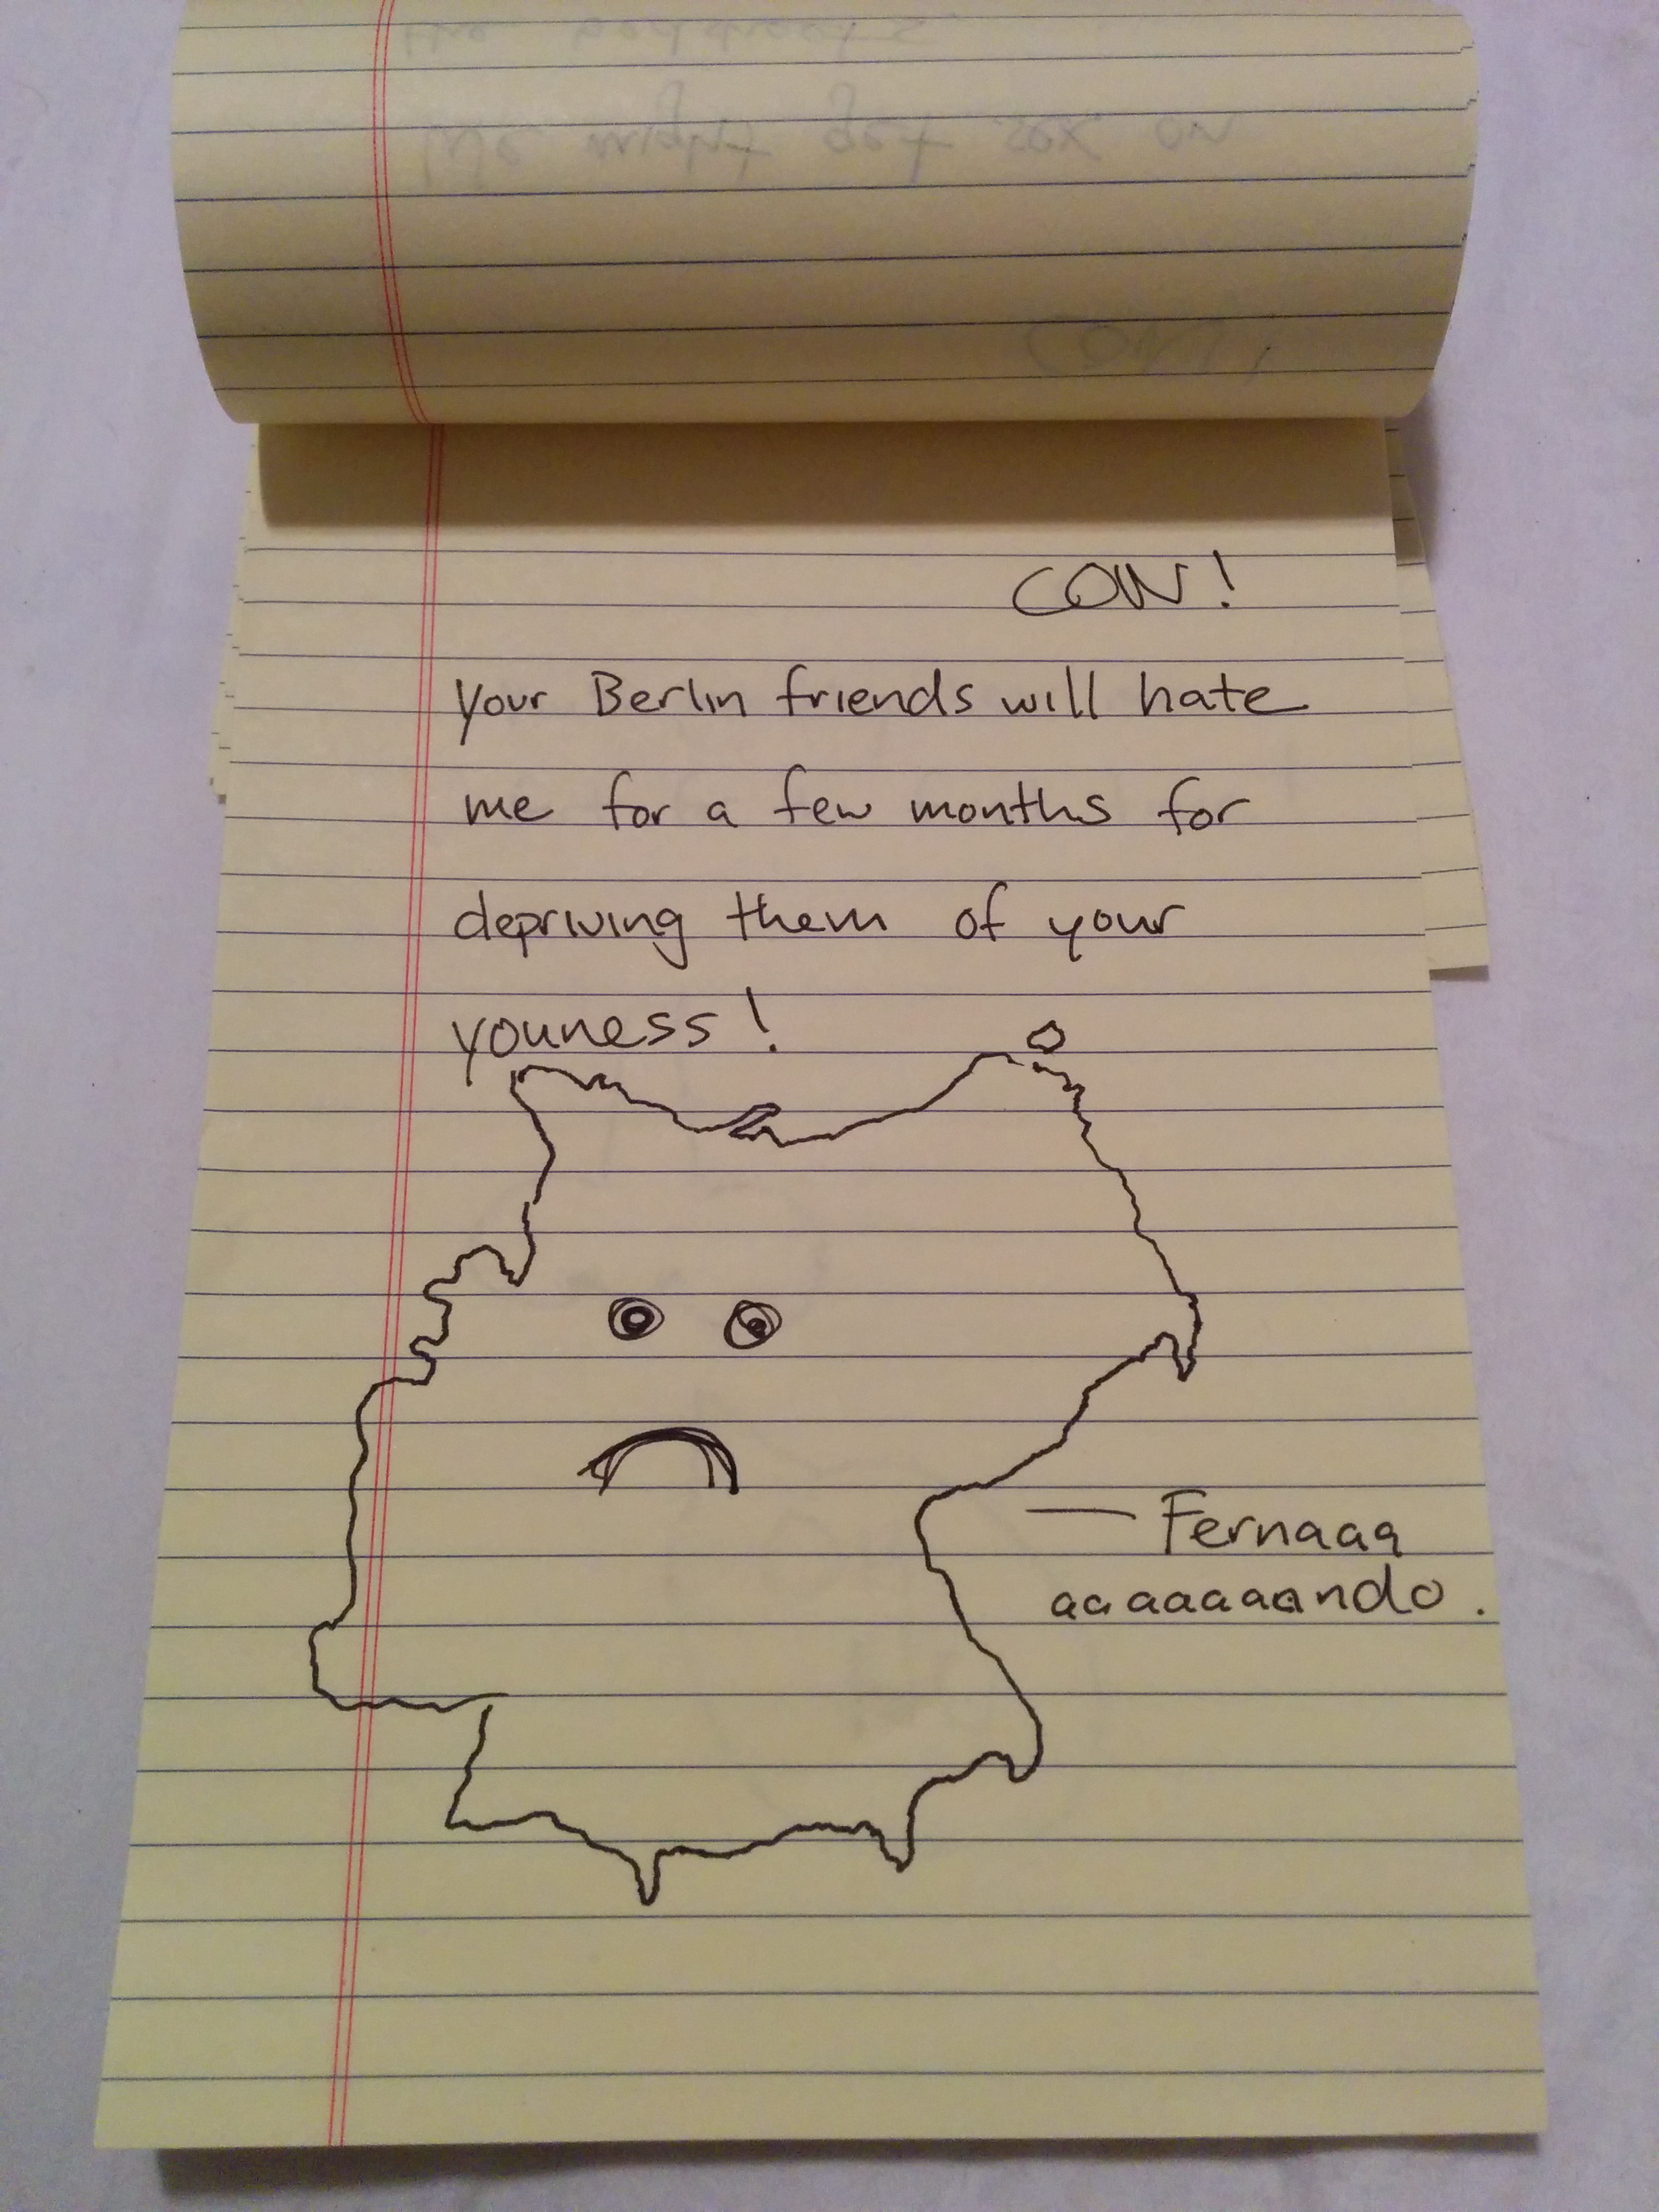 COW!
Your Berlin friends will hate
me for a few months for
depriving them of your
youness!
— Fernaaa
aaaaaaaando.